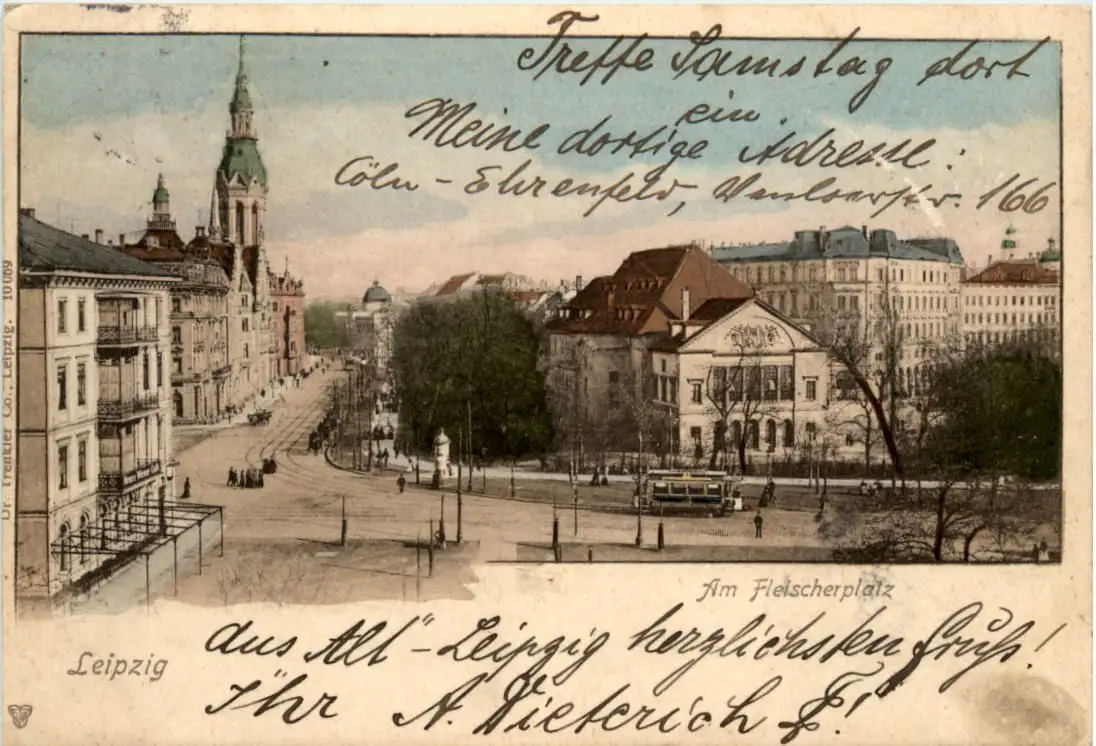 Treffe Samstag dort
ein.
Meine dortige Adresse:
Cöln-Ehrenfeld, 166
Dr. Trenkler Co., Leipzig. 10 069
Am Fleischerplatz
Leipzig
aus Alt-Leipzig herzlichsten Gruß!
Ihr A. Dieterich